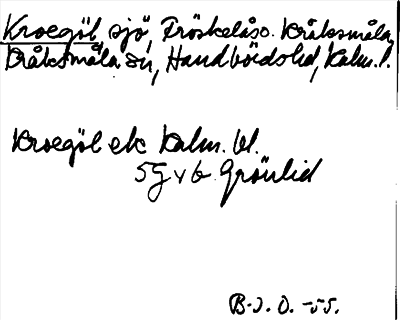 Kroegöl, sjö, Fröskelåso. Kråksmåla,
Kråksmåla sn, Handbördshd, Kalm. l.
Kroegöl ek Kalm. bl.
5 G v b Grönlid
B. J. O. -55.